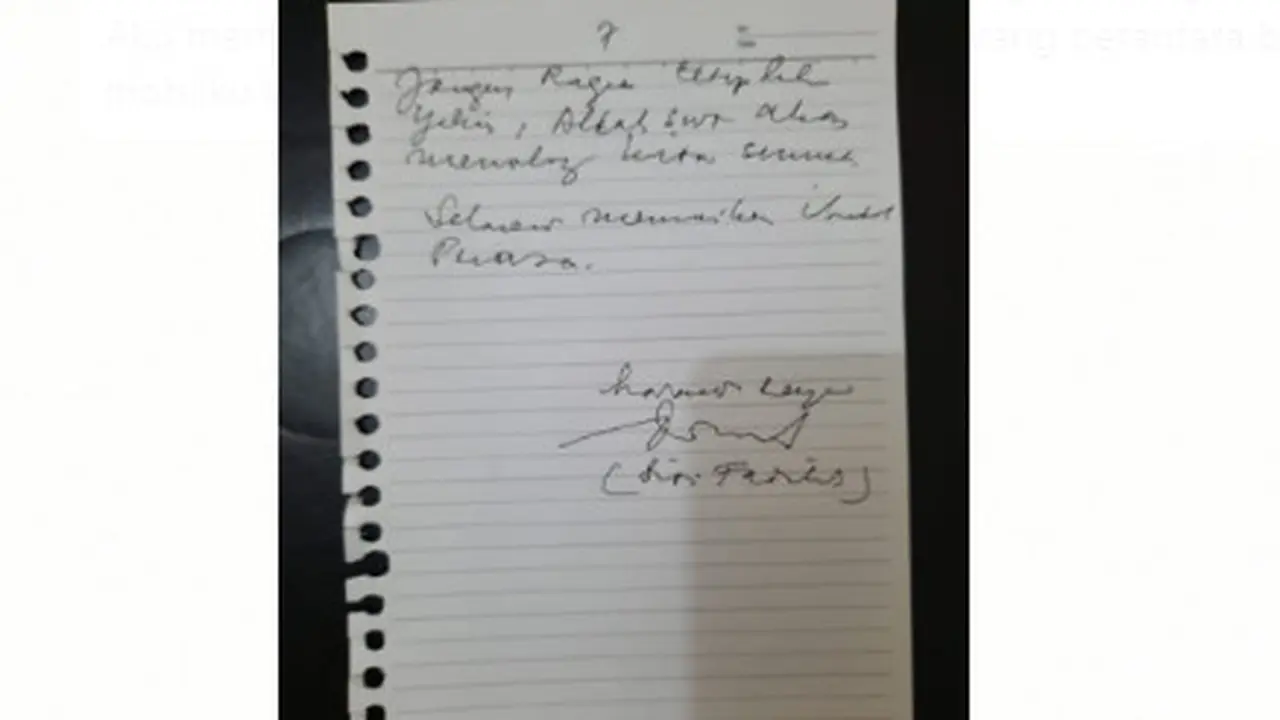 7
Jangan Ragu tetaplah
Yakin, Allah swt akan
menolong kita semua
Selamat menunaikan Ibadah
Puasa.
hormat saya
(Siti Fadilah)